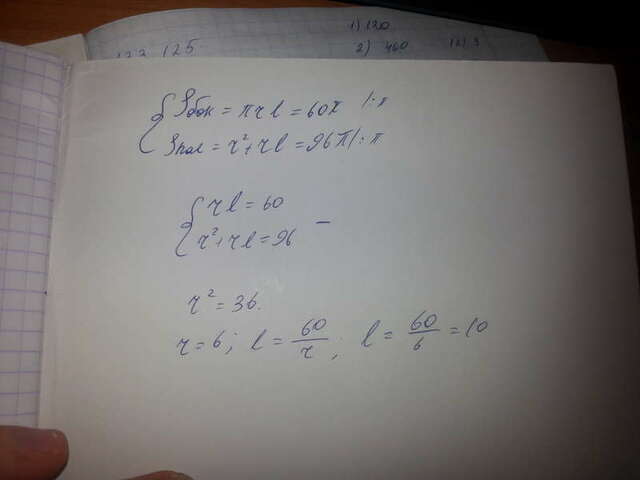 1) 120
123 125
2) 460
{ Sбок = πrl = 60π /:π
Sпол = r²+rl = 96π /:π
{ rl = 60
r²+rl = 96 –
r² = 36.
r = 6; l = 60/r; l = 60/6 = 10